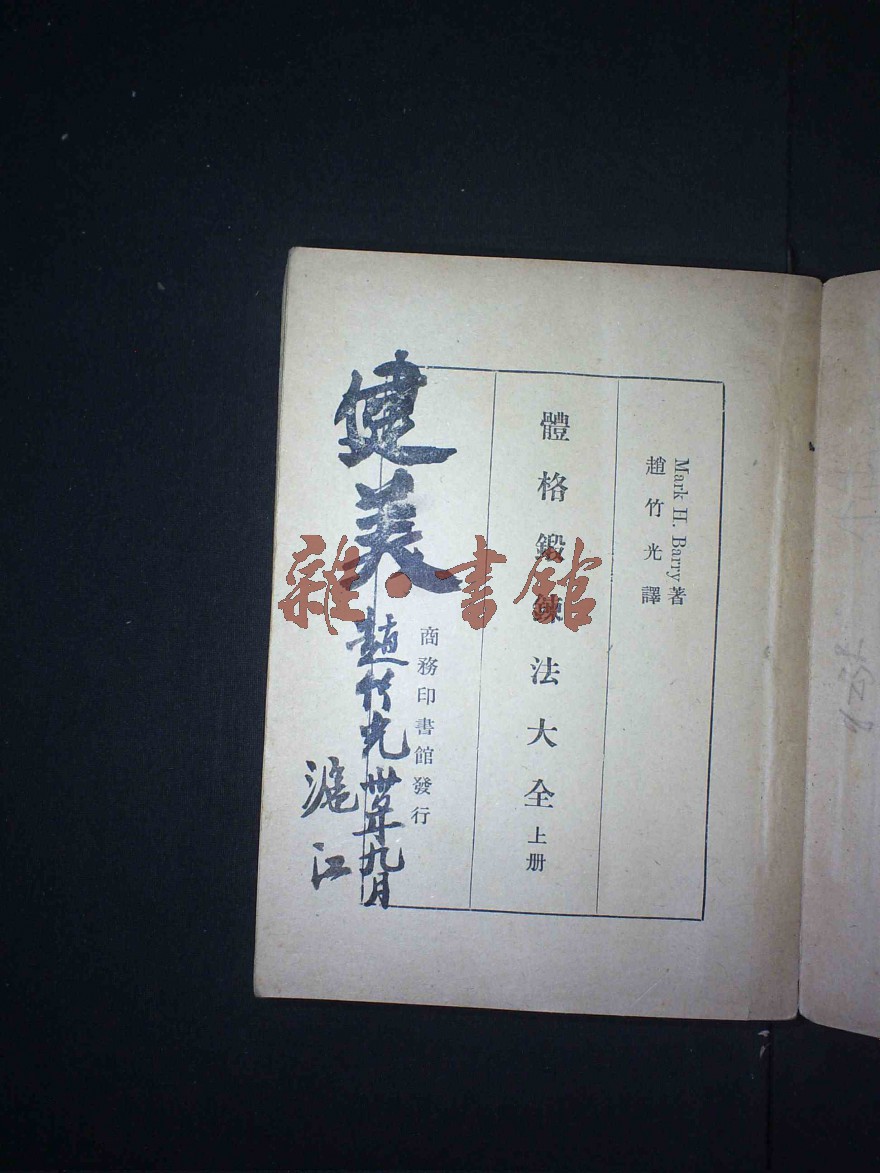 Mark H. Barry 著
趙竹光譯
體格鍛鍊法大全上册
商務印書館發行
健美
趙竹光 卅年九月
滬江
雜·書館